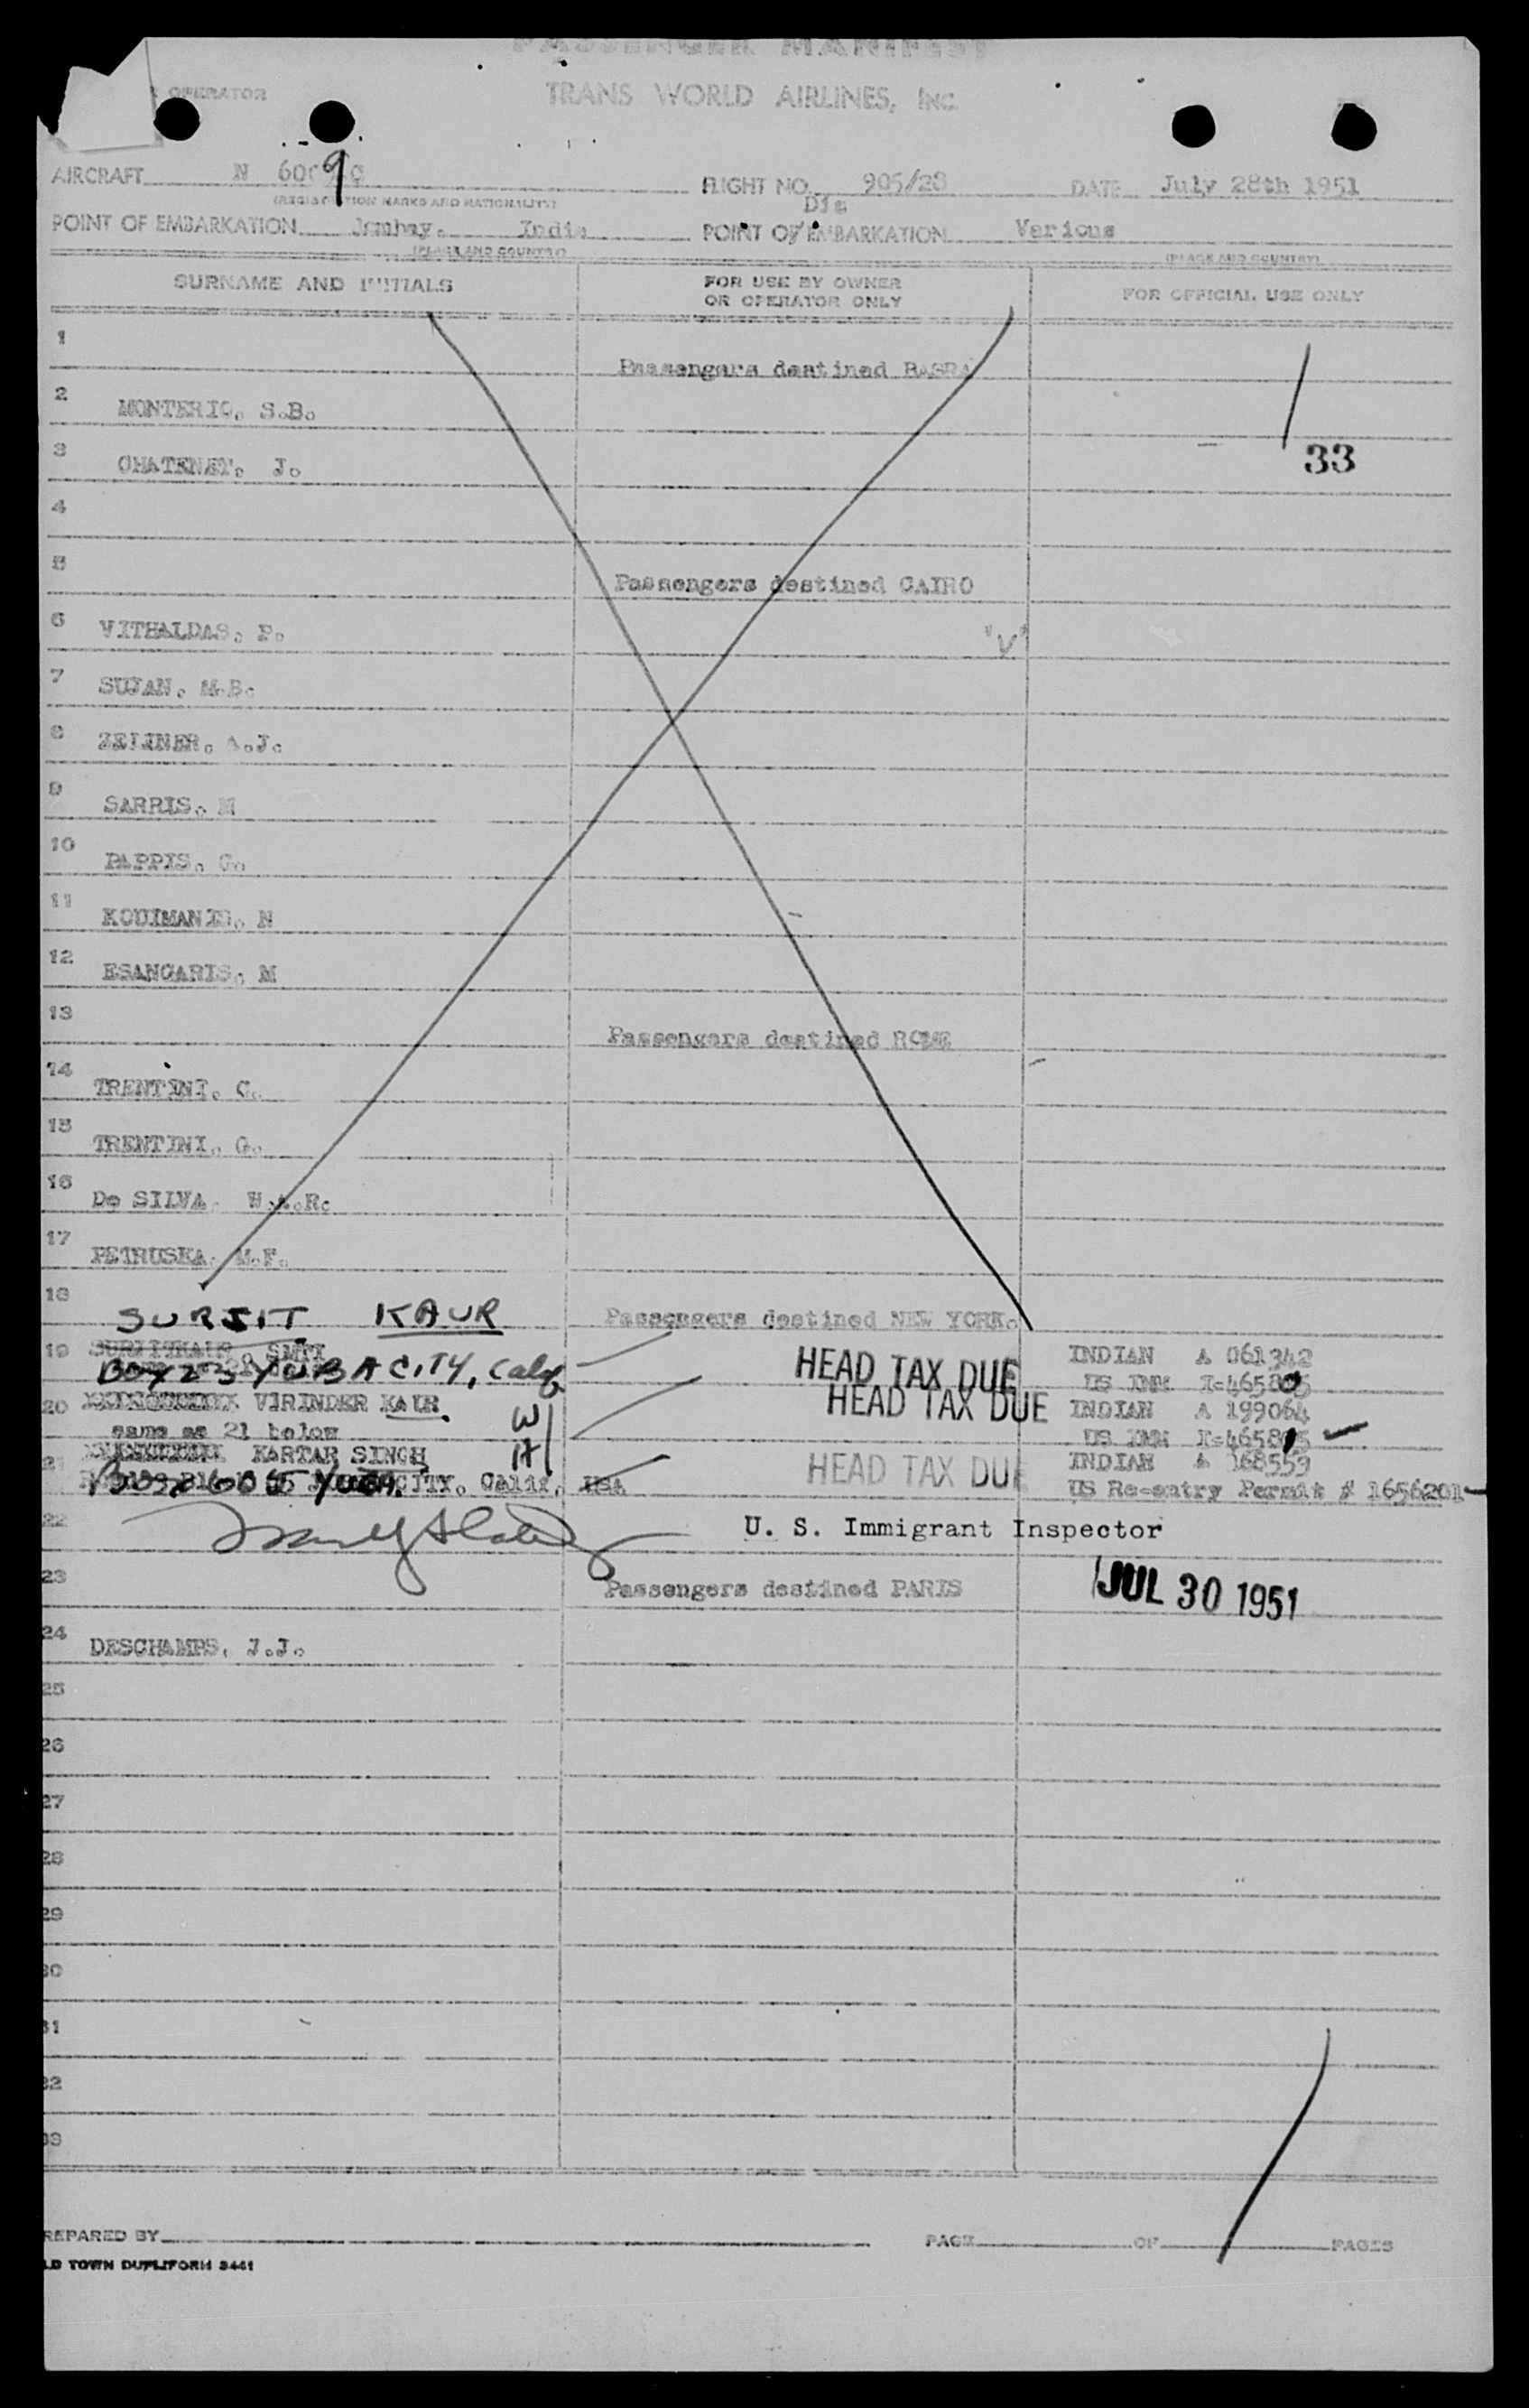 PASSENGER MANIFEST
OPERATOR
TRANS WORLD AIRLINES, INC.
AIRCRAFT N FLIGHT NO. 905/28 DATE July 28th 1951
(REGISTRATION MARKS AND NATIONALITY)
Dis
POINT OF EMBARKATION India POINT OF EMBARKATION Various
(PLACE AND COUNTRY) (PLACE AND COUNTRY)
SURNAME AND INITIALS FOR USE BY OWNER OR OPERATOR ONLY FOR OFFICIAL USE ONLY
1 Passengers destined BASRA
2 MONTERIO. S.B.
33
3 CHATENET. J.
4
5 Passengers destined CAIRO
6 VITHALDAS. P. "V"
7 SUJAN. M.B.
8 ZELINER. A.J.
9 SARRIS. M
10 PAPPIS. G.
11 KOUIMANIS. N
12 ESANGARIS. M
13 Passengers destined ROME
14 TRENTINI. C.
15 TRENTINI. G.
16 De SILVA. W.A.R.
17 PETRUSKA. M.F.
18 SURJIT KAUR Passengers destined NEW YORK.
19 SMTI HEAD TAX DUE INDIAN A 061342
BOX 23 YUBA CITY, Calif US IMM
20 VIRINDER KAUR W/ HEAD TAX DUE INDIAN A 199064
same as 21 below US IMM
21 KARTAR SINGH H/ HEAD TAX DUE INDIAN A 168559
Box YUBA CITY. Calif. USA US Re-entry Permit # 1656201
22 U. S. Immigrant Inspector
23 Passengers destined PARIS JUL 30 1951
24 DESCHAMPS, J.J.
25
26
27
28
29
30
31
32
33
REPARED BY PAGE OF PAGES
LD TOWN DUPLIFORM 3461